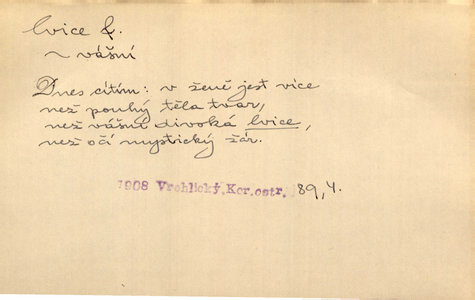 lvice f.
~ vášní
Dnes cítím: v ženě jest více
než pouhý těla tvar,
než vášní divoká lvice,
než očí mystický žár.
1908 Vrchlický, Kor. ostr. 89,4.